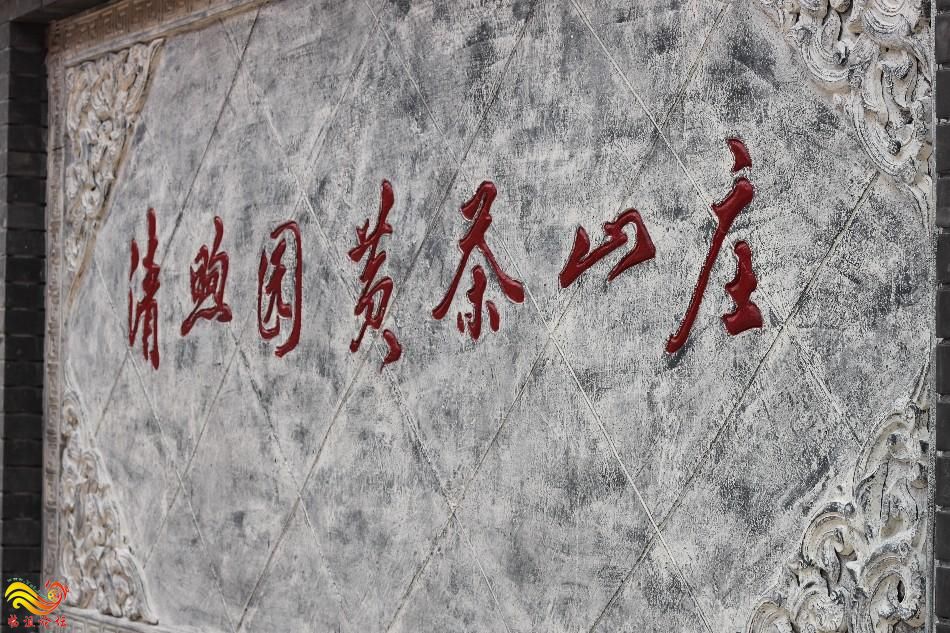 清煦园黄茶山庄